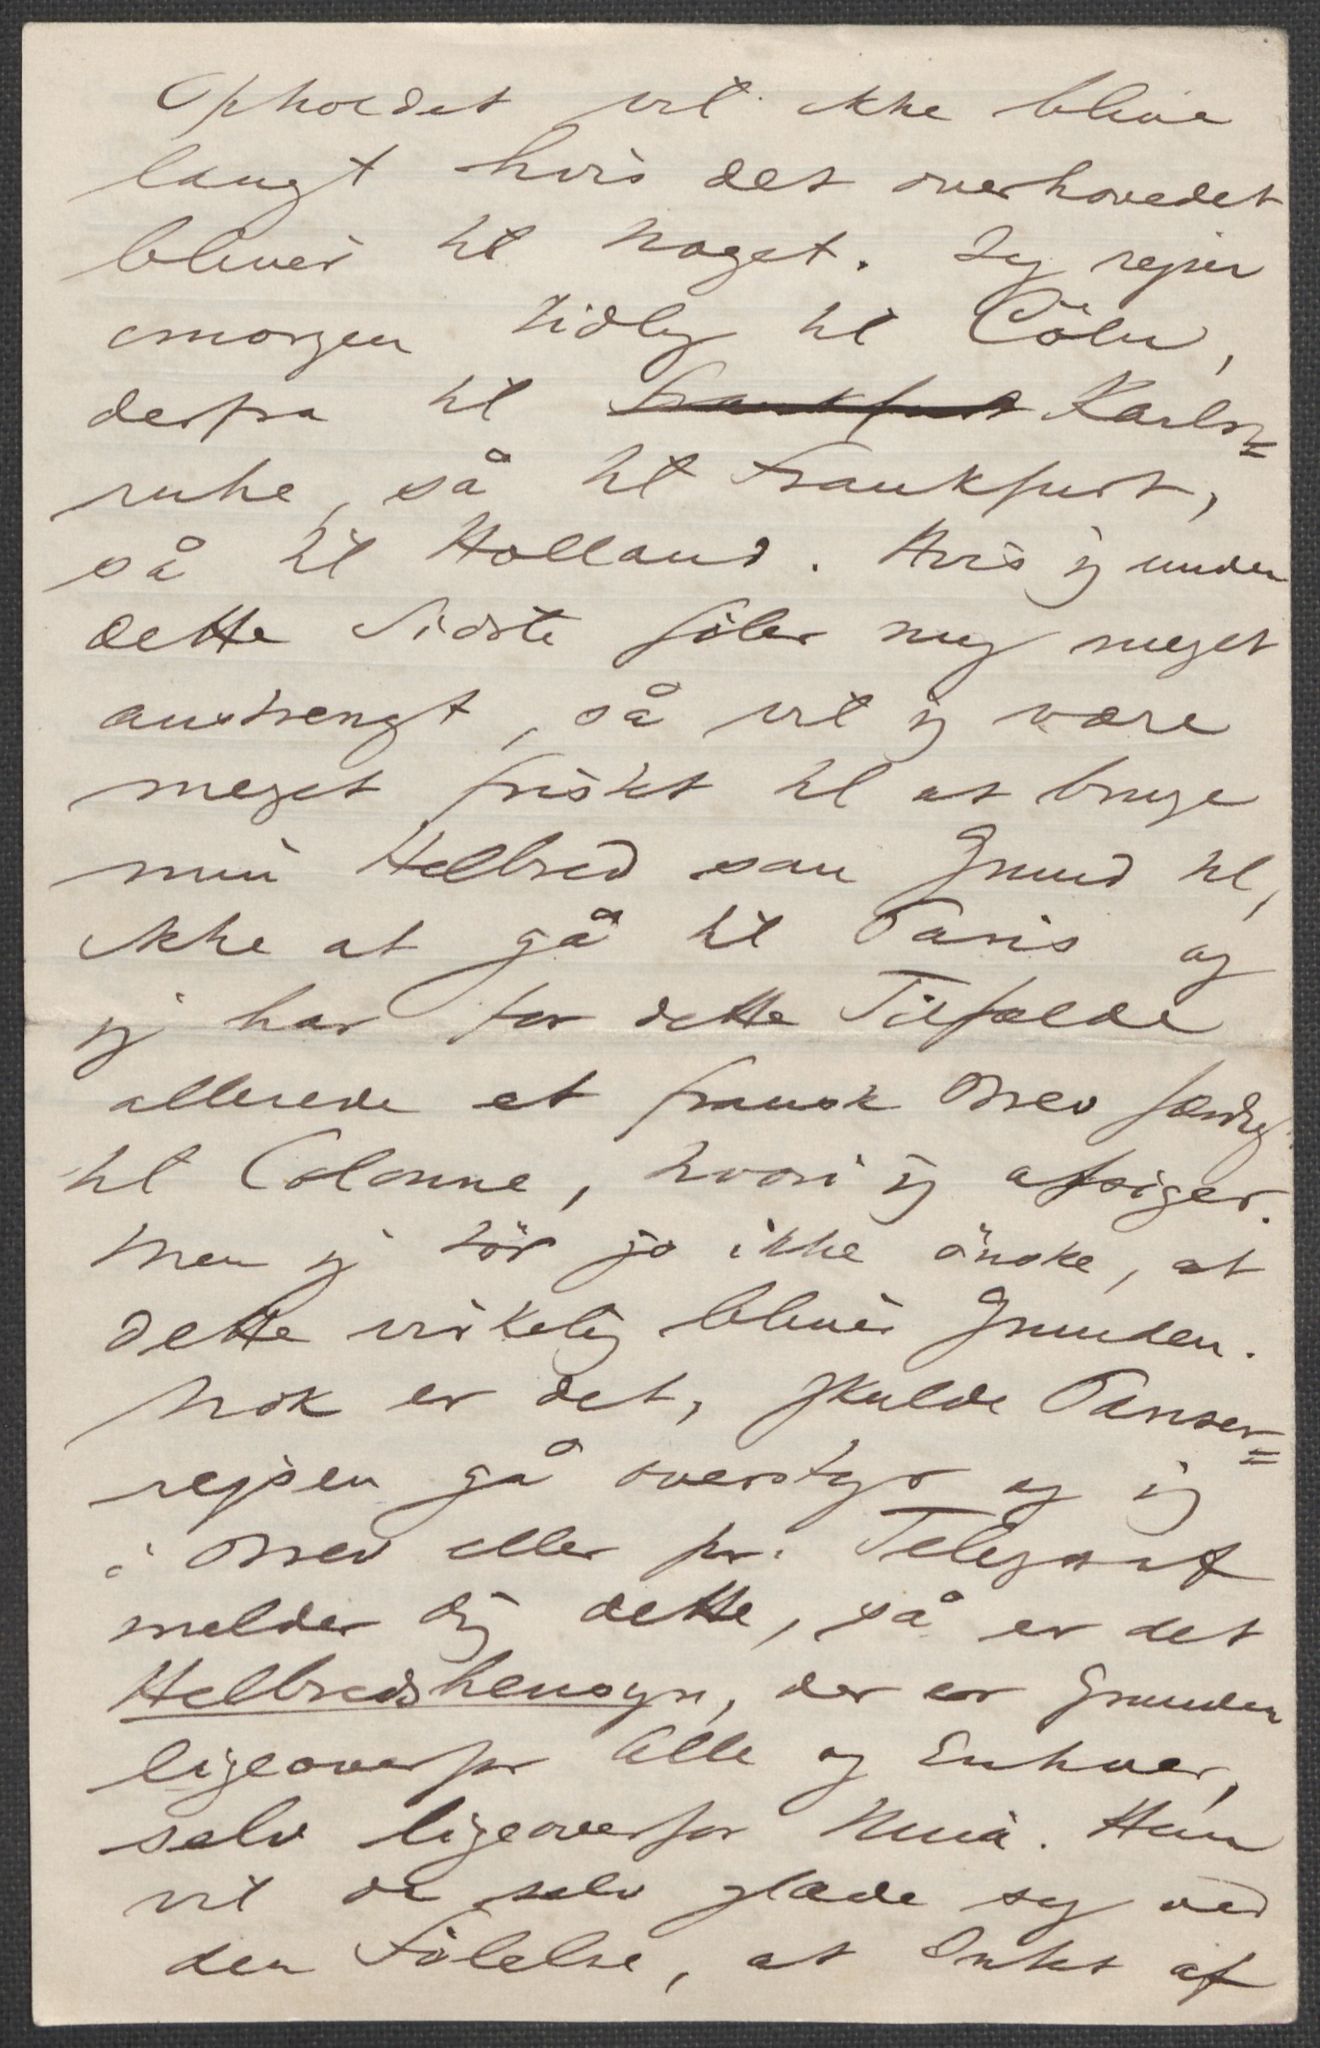 Opholdet vil ikke blive
langt hvis det overhovedet
bliver til noget. Jeg rejser
imorgen tidlig til Cöln,
derfra til Frankfurt Karls=
ruhe, så til Frankfurt,
så til Holland. Hvis jeg under
dette Sidste föler mig meget
anstrengt, så vil jeg være
meget fristet til at bruge
min Helbred som Grund til,
ikke at gå til Paris og
jeg har for dette Tilfælde
allerede et fransk Brev færdig
til Colonne, hvori jeg afsiger.
Men jeg tör jo ikke önske, at
dette virkelig bliver Grunden.
Nok er det, skulde Pariser=
rejsen gå overstyr og jeg
i Brev eller pr. Telegraf
melder Dig dette, så er det
Helbredshensyn, der er Grunden
ligeoverfor Alle og Enhver,
selv ligeoverfor Nina. Hun
vil da selv glæde sig ved
den Fölelse, at Intet af